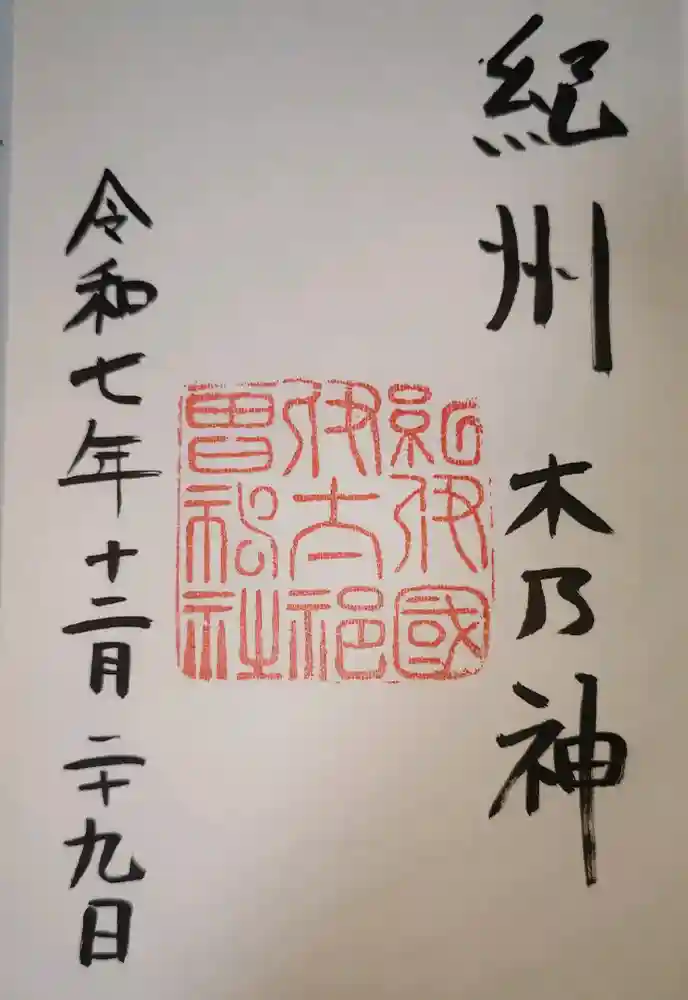 紀州 木乃神
紀伊國
伊太祁
曽神社
令和七年十二月二十九日